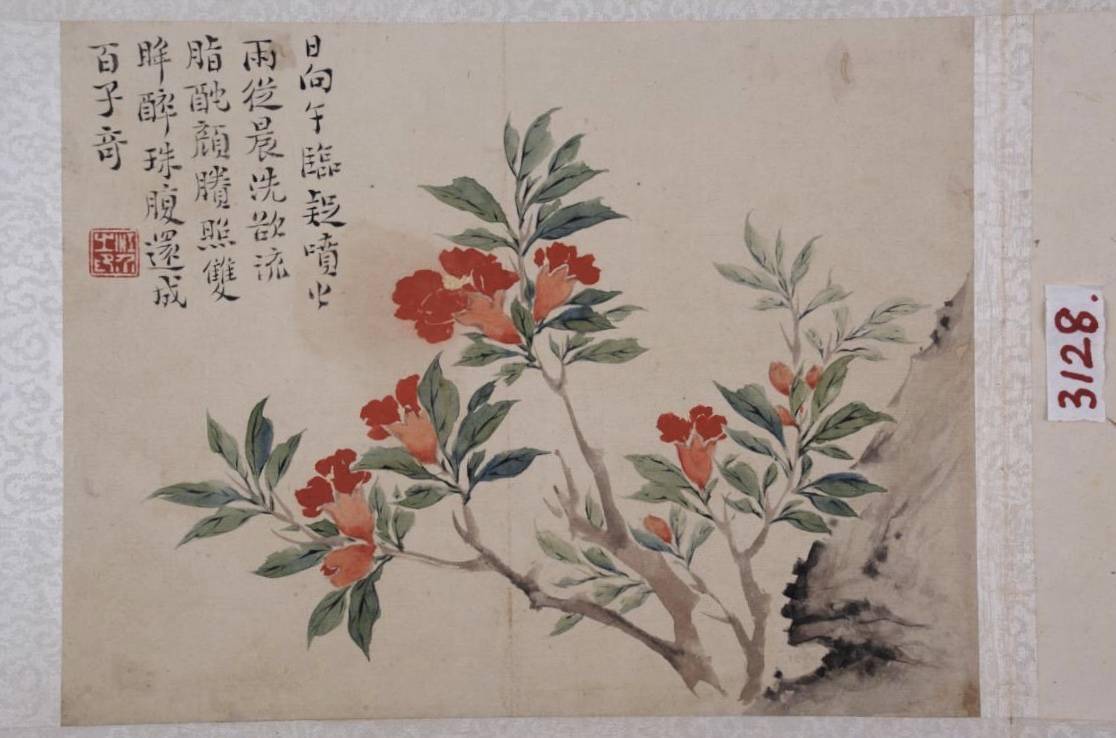 日向午臨疑噴火
雨從晨洗欲流
脂酡顏賸照雙
眸醉珠腹還成
百子奇
3128.